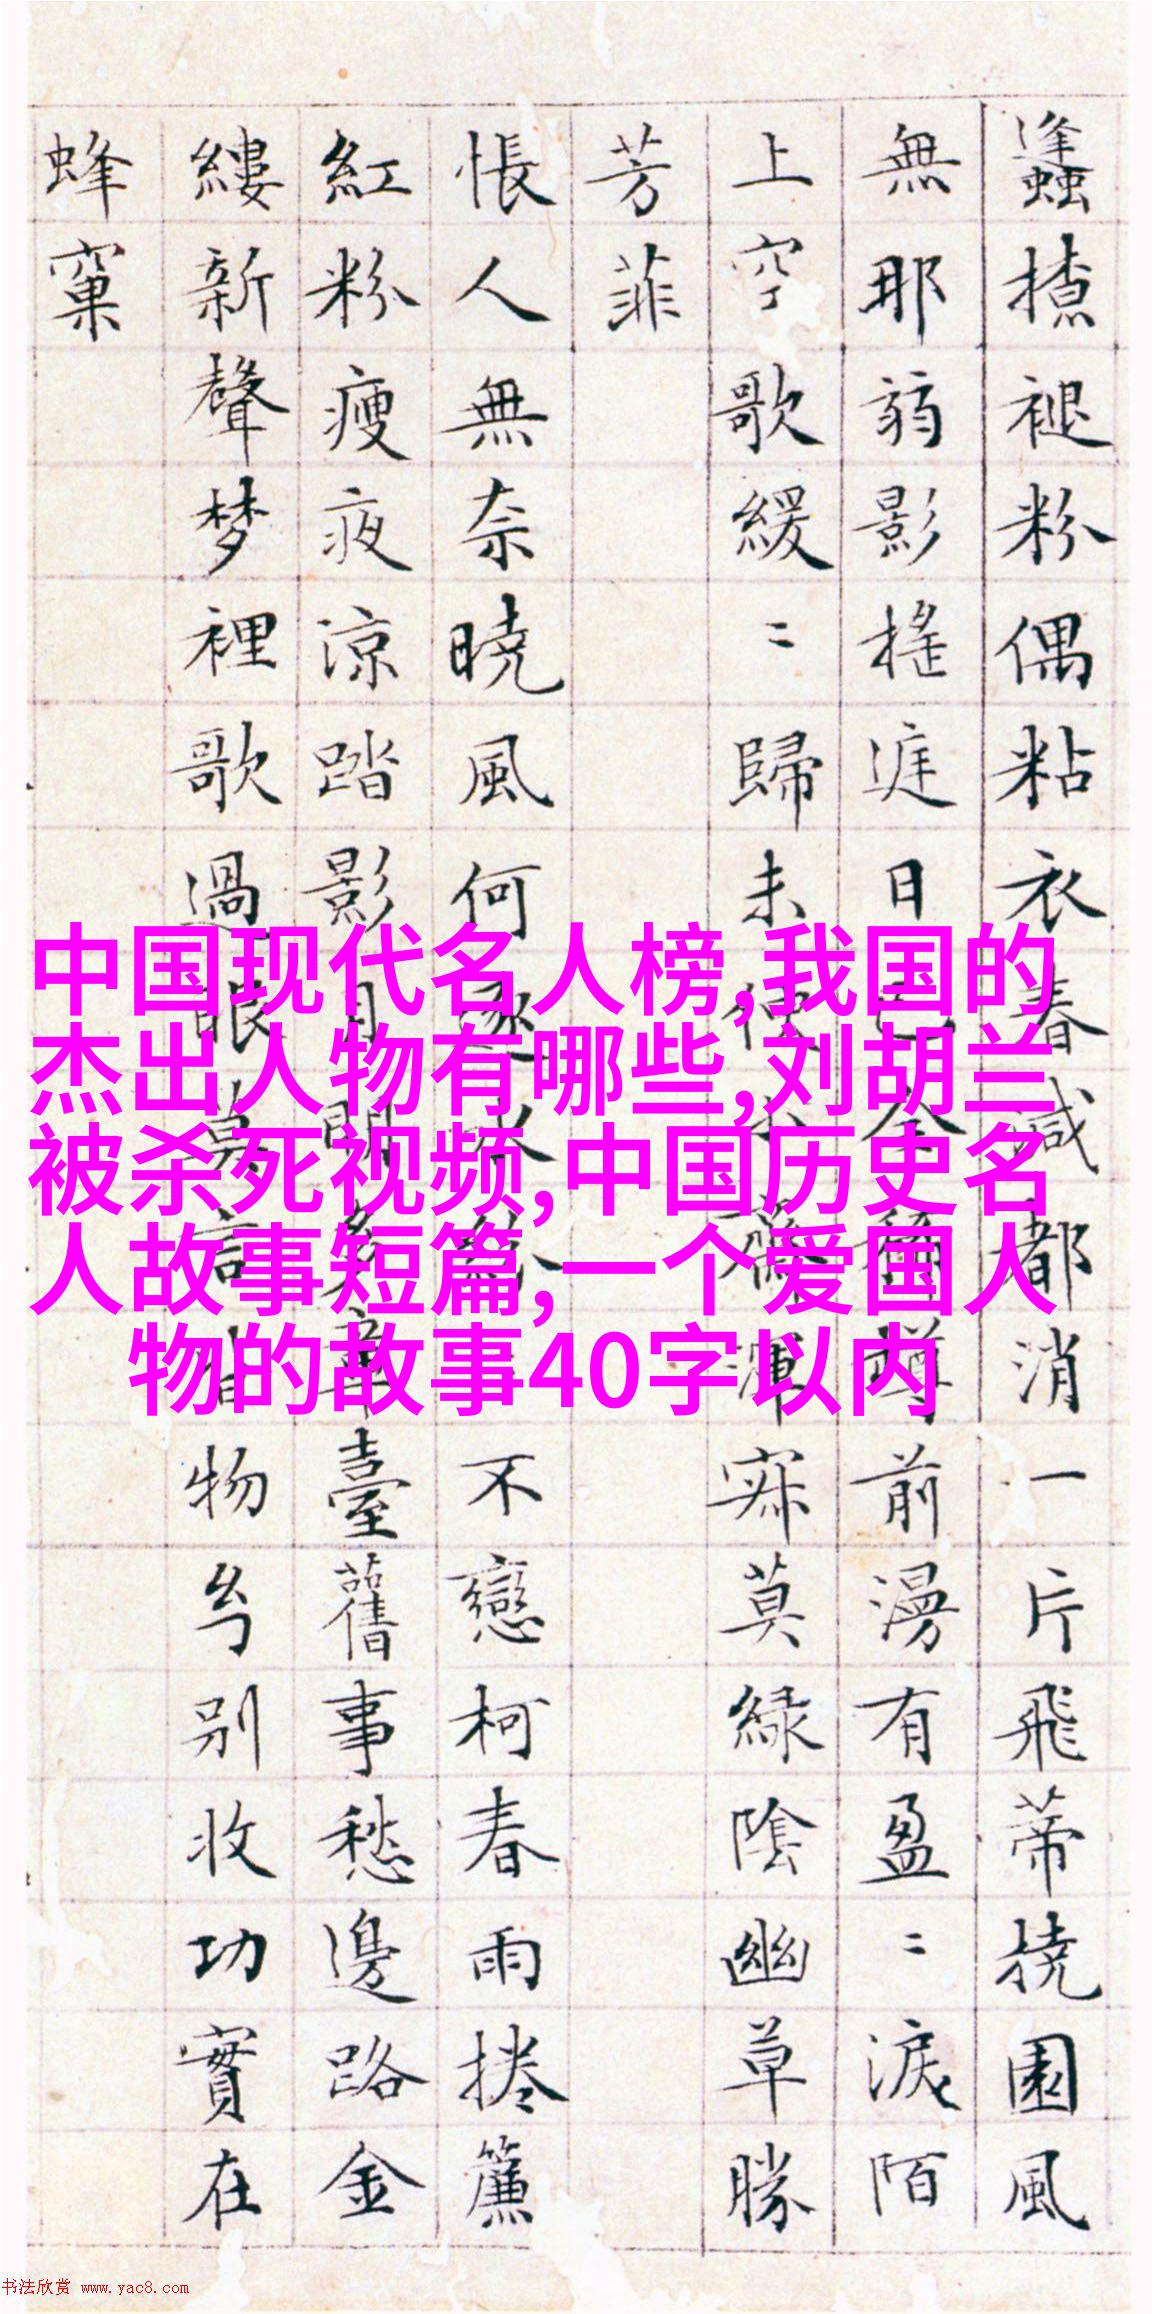 蠭揸褪粉偶粘衣春减都消一片飛蒂撓園風
無那弱影搖遅日前漫有盈〻淚陌
上空歌緩〻歸未寂莫緑陰幽草勝
芳菲
悵人無奈曉風何不戀柯春雨捲簾
紅粉瘦夜涼踏影臺舊事愁邊路金
縷新聲梦裡歌過眼莫言物兮别收功實在
蜂窠
中国现代名人榜,我国的
杰出人物有哪些,刘胡兰
被杀死视频,中国历史名
人故事短篇,一个爱国人
物的故事40字以内
书法欣赏 www.yac8.com